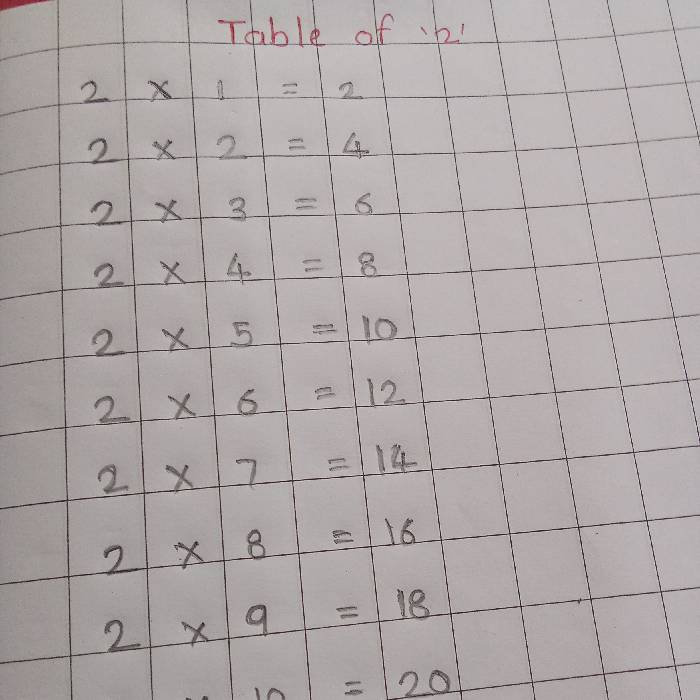 Table of '2'
2 × 1 = 2
2 × 2 = 4
2 × 3 = 6
2 × 4 = 8
2 × 5 = 10
2 × 6 = 12
2 × 7 = 14
2 × 8 = 16
2 × 9 = 18
× 10 = 20